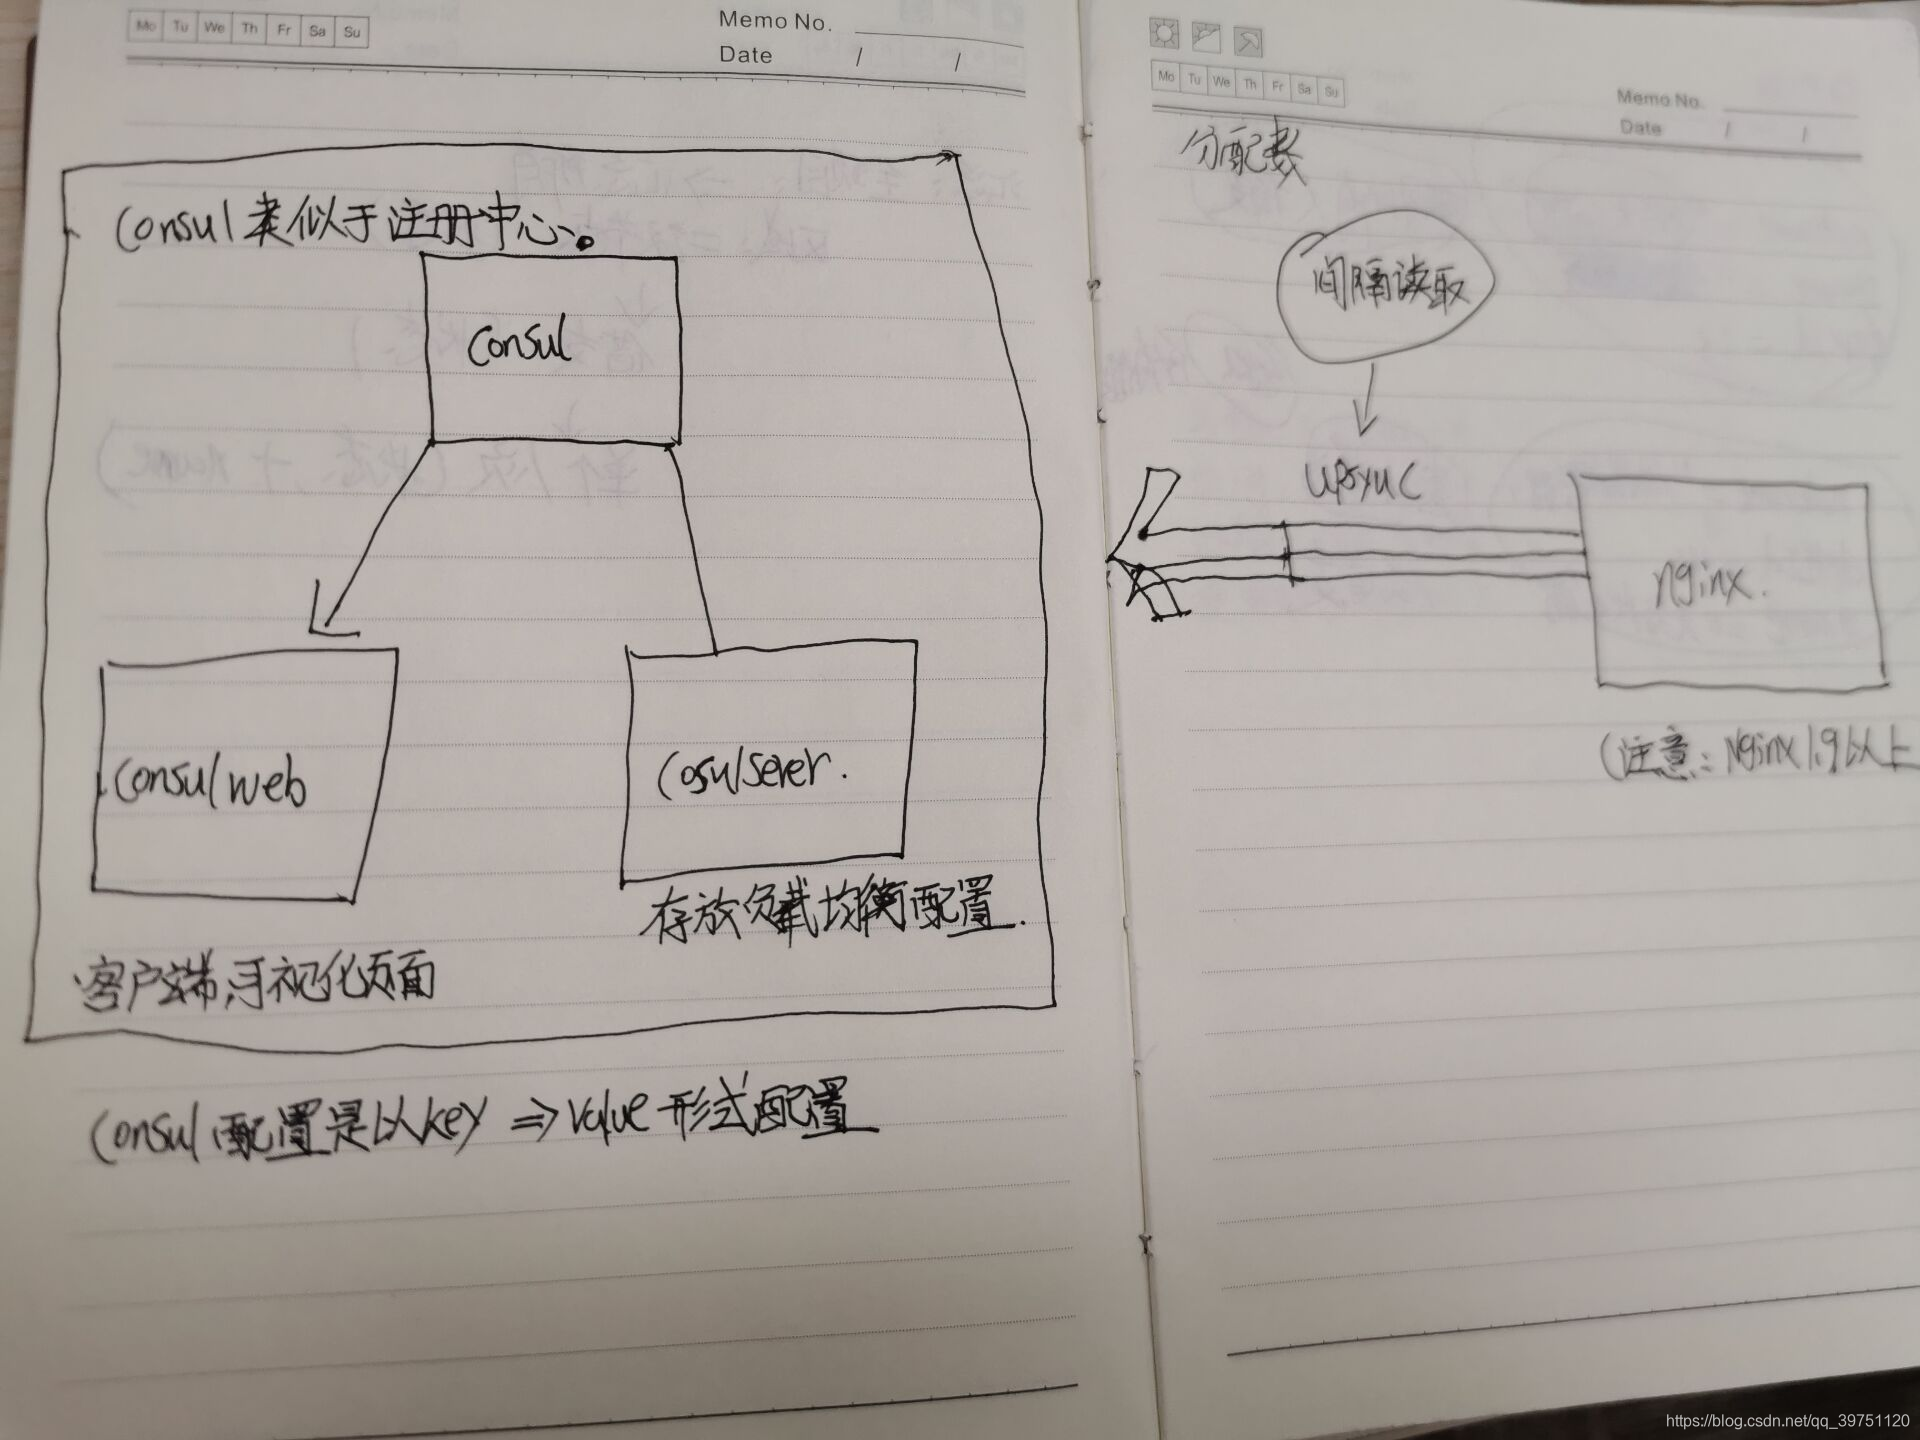 Mo Tu We Th Fr Sa Su
Memo No.
Date / /
Consul类似于注册中心。
Consul
Consulweb
Cosulsever.
存放负载均衡配置.
客户端,可视化页面
Consul配置是以key => value 形式配置
Mo Tu We Th Fr Sa Su
Memo No.
Date / /
分配数
间隔读取
upsyuc
nginx.
(注意: Nginx1.9以上
https://blog.csdn.net/qq_39751120